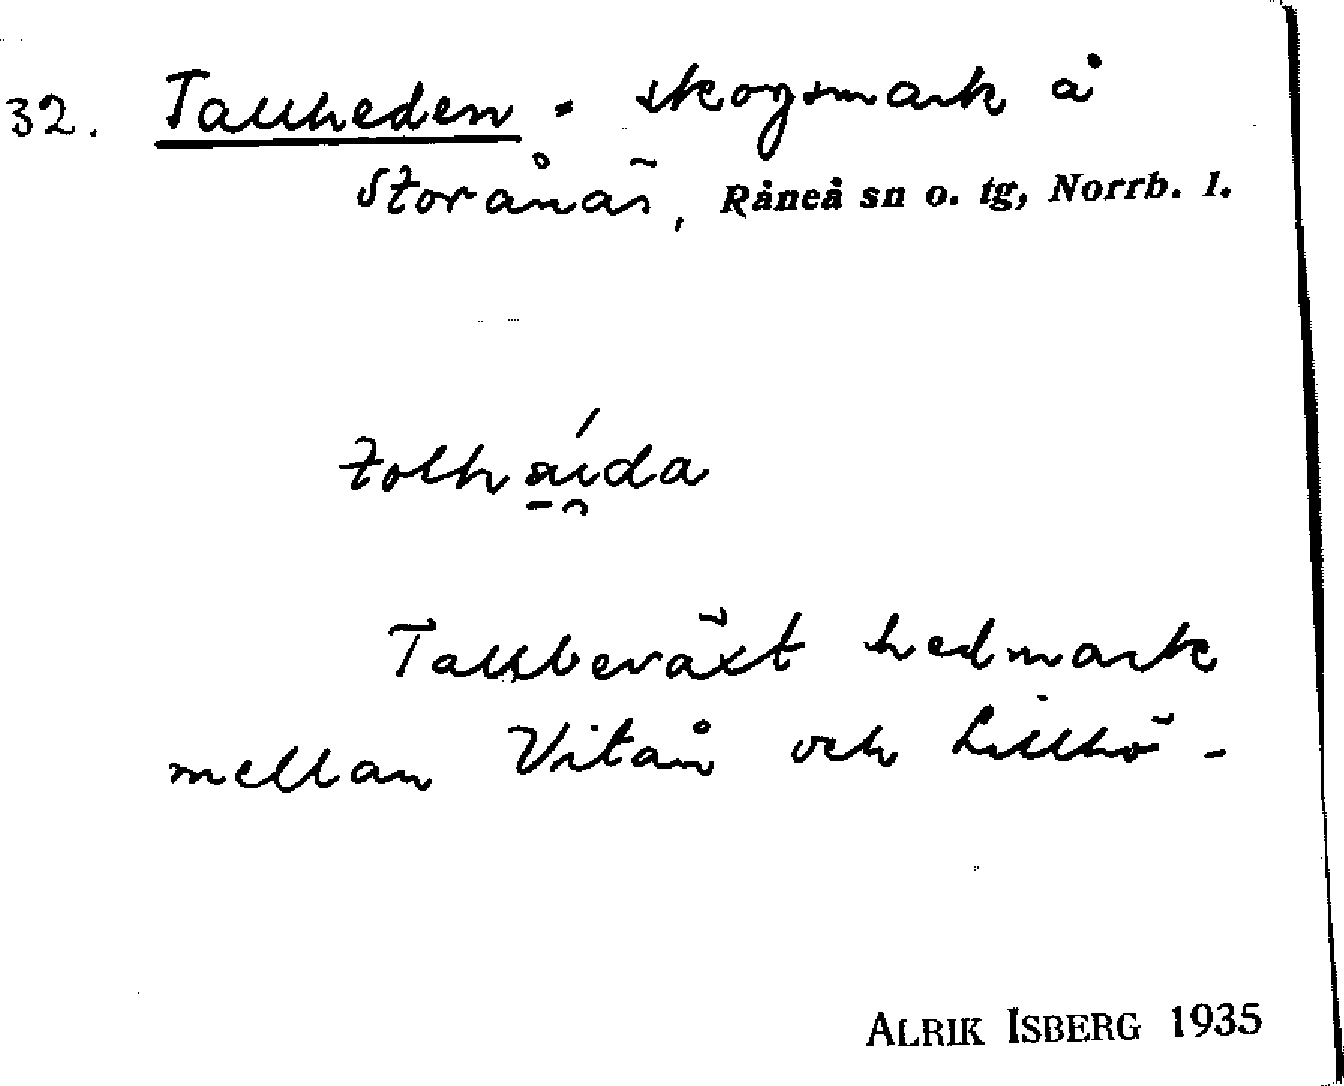 32. Tallheden = skogsmark å
Storånäs, Råneå sn o. tg, Norrb. l.
tolhaída
Tallbeväxt hedmark
mellan Vitån och Lillhö-
ALRIK ISBERG 1935